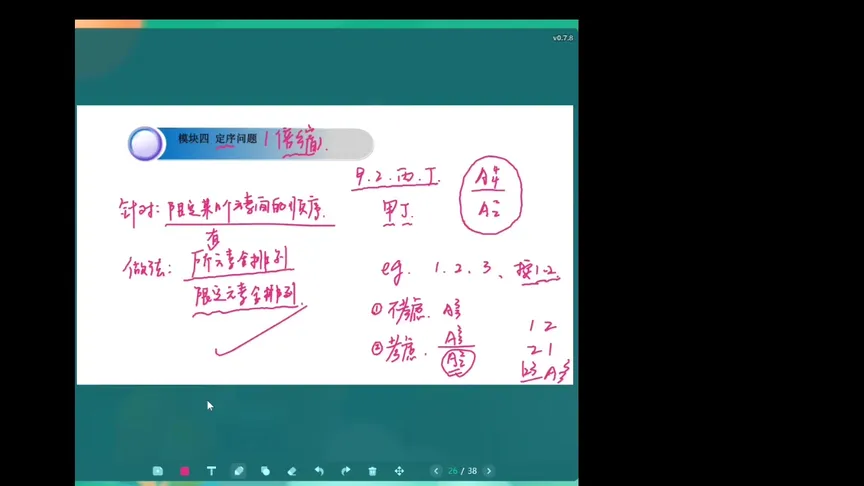 v0.7.8
模块四 定序问题 (倍缩).
甲.乙.丙.丁.
甲丁
A⁴₄/A²₂
针对: 限定某几个元素间的顺序.
做法: 所有元素全排列
限定元素全排列.
eg. 1.2.3、按1.2
①不考虑. A³₃
②考虑. A³₃/A²₂
1 2
2 1
A³₃
26 / 38